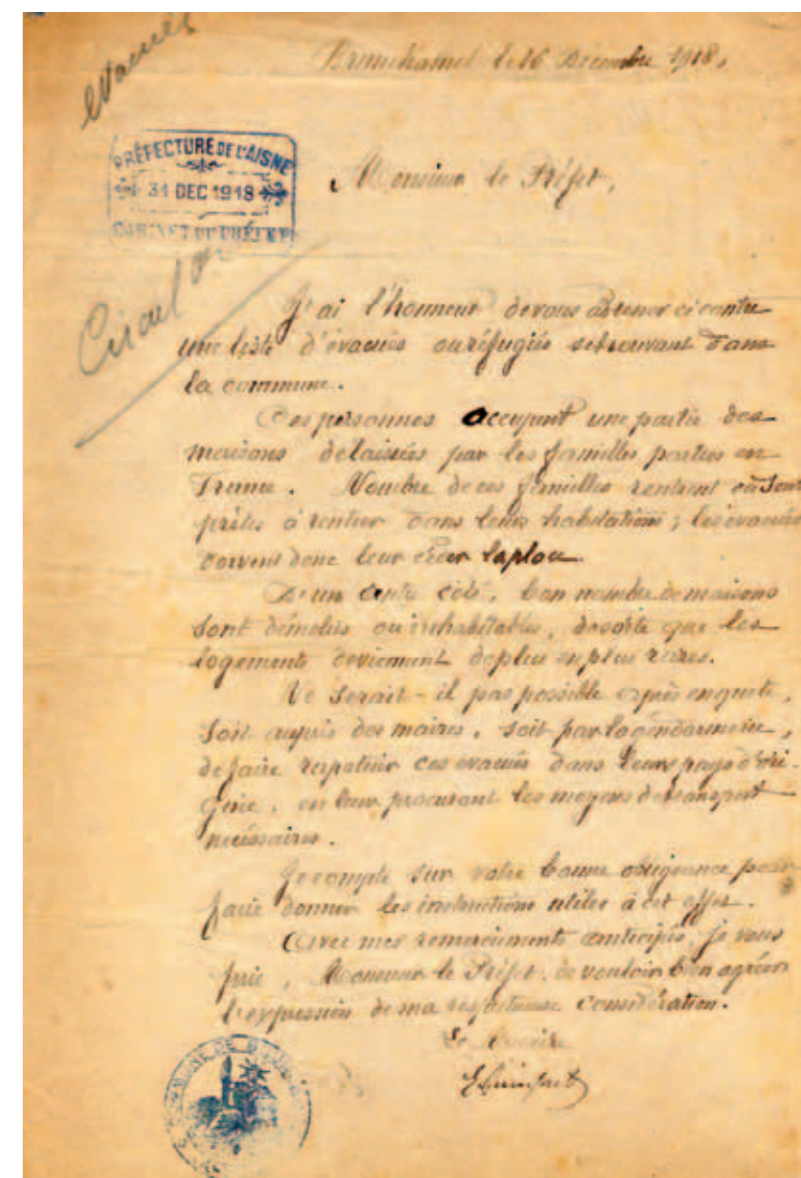 Evacués
Brunehamel le 26 Décembre 1918,
PRÉFECTURE DE L'AISNE
31 DEC 1918
CABINET DU PRÉFET
Monsieur le Préfet,
J'ai l'honneur de vous adresser ci contre
une liste d'évacués ou réfugiés se trouvant dans
la commune.
Ces personnes occupent une partie des
maisons délaissées par les familles parties en
France. Nombre de ces familles rentrent ou sont
prêtes à rentrer dans leurs habitations ; les évacués
doivent donc leur céder la place.
D'un autre côté, bon nombre de maisons
sont démolies ou inhabitables, de sorte que les
logements deviennent de plus en plus rares.
Ne serait-il pas possible après enquête,
soit auprès des maires, soit par la gendarmerie,
de faire rapatrier ces évacués dans leurs pays d'ori-
gine, en leur procurant les moyens de transport
nécessaires.
Je compte sur votre bonne obligeance pour
faire donner les instructions utiles à cet effet.
Avec mes remerciements anticipés, je vous
prie, Monsieur le Préfet, de vouloir bien agréer
l'expression de ma respectueuse considération.
Le Maire
COMMUNE DE